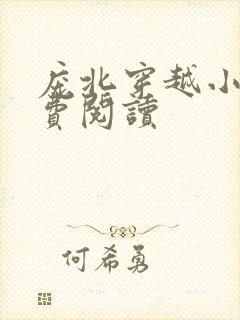 庇北穿越小
費閱讀
何希勇